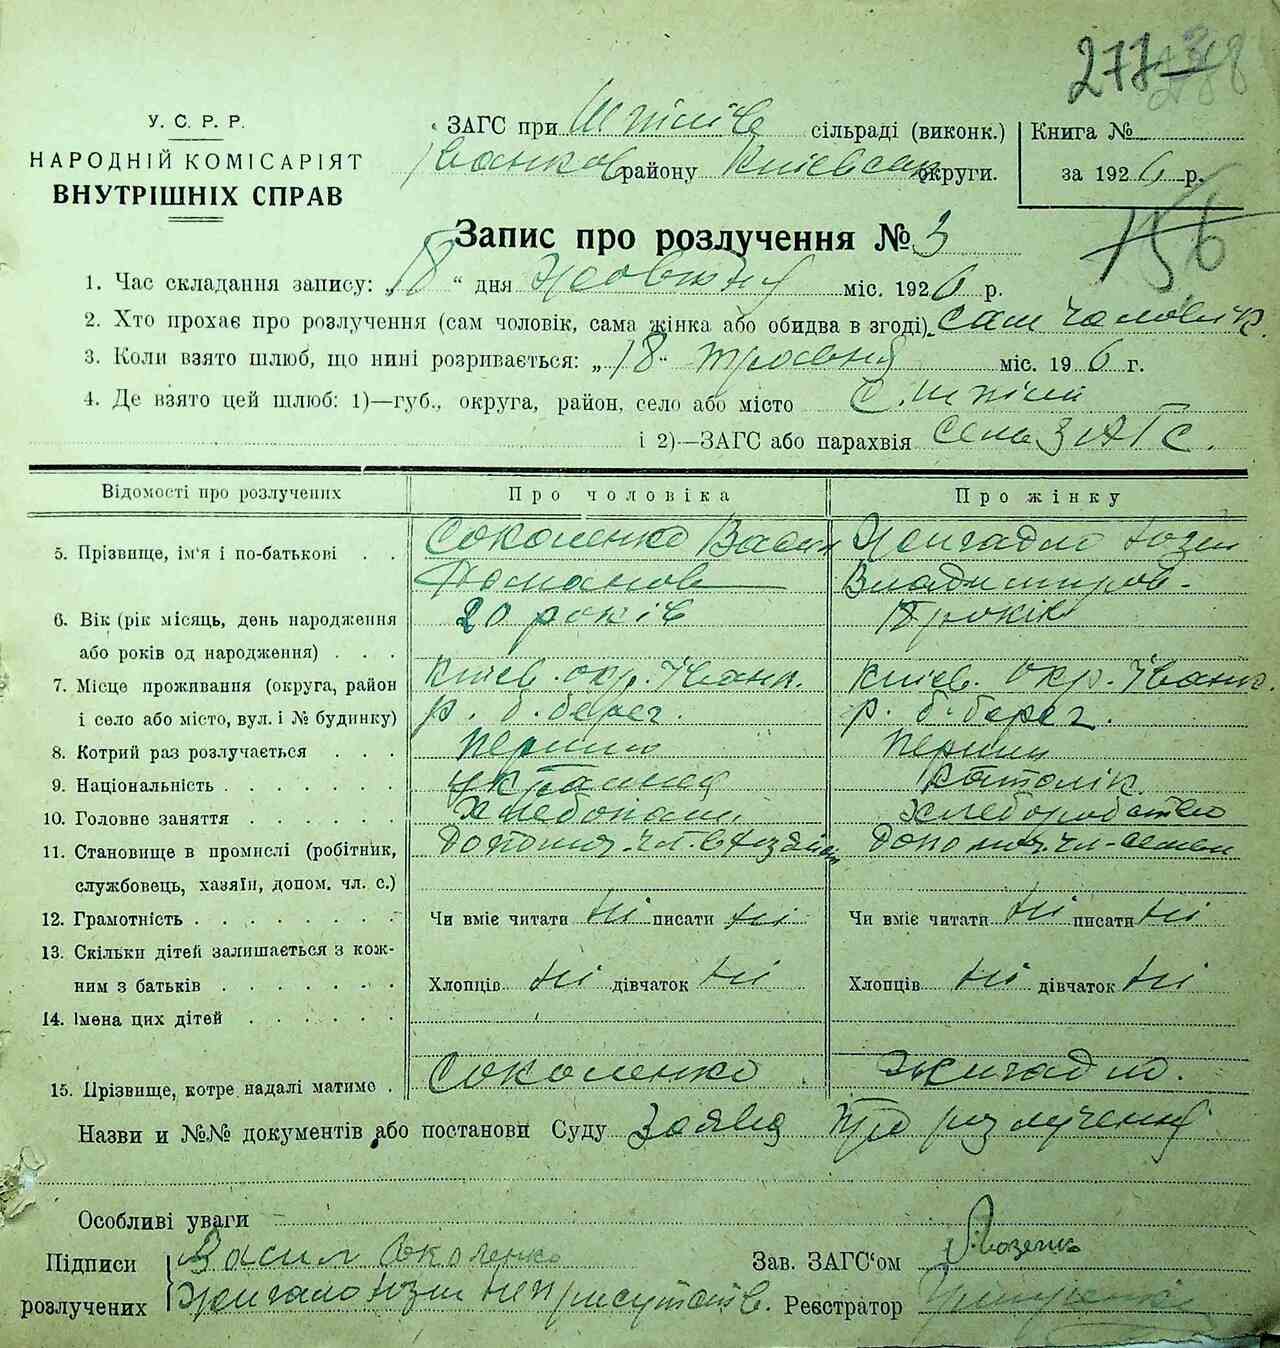 277
У. С. Р. Р.
НАРОДНІЙ КОМІСАРІЯТ
ВНУТРІШНІХ СПРАВ
ЗАГС при Шпілів сільраді (виконк.)
Іванков району Київськ округи.
Книга №
за 1926 р.
156
Запис про розлучення № 3
1. Час складання запису: „18“ дня Жовтня міс. 1926 р.
2. Хто прохає про розлучення (сам чоловік, сама жінка або обидва в згоді) сам чоловік
3. Коли взято шлюб, що нині розривається: „18“ травня міс. 196 г.
4. Де взято цей шлюб: 1)—губ., округа, район, село або місто с. Шпілі
і 2)—ЗАГС або парахвія сельЗАГС.
Відомості про розлучених Про чоловіка Про жінку
5. Прізвище, ім'я і по-батькові . . Соколенко Васил Жигадло Юзеп
Романов Владимиров-
6. Вік (рік місяць, день народження 20 років 18 років
або років од народження) . . .
7. Місце проживання (округа, район Київ. окр. Іванк. Київ. Окр. Іванк.
і село або місто, вул. і № будинку) р. б. берег. р. б. берег.
8. Котрий раз розлучається . . . перший перший
9. Національність . . . . . . . українец католік
10. Головне заняття . . . . . . хлебопаш хлеборобство
11. Становище в промислі (робітник, Допомог. чл. Допомог. чл-семьи
службовець, хазяїн, допом. чл. с.)
12. Грамотність . . . . . . . . Чи вміє читати ні писати ні Чи вміє читати ні писати ні
13. Скільки дітей залишається з кож-
ним з батьків . . . . . . . Хлопців ні дівчаток ні Хлопців ні дівчаток ні
14. Імена цих дітей . . . . . .
15. Прізвище, котре надалі матиме . Соколенко Жигадло.
Назви и №№ документів або постанови Суду Заява про розлучення
Особливі уваги
Підписи Васил Соколенко Зав. ЗАГС'ом
розлучених Жигало Юзеп неприсутств. Реєстратор